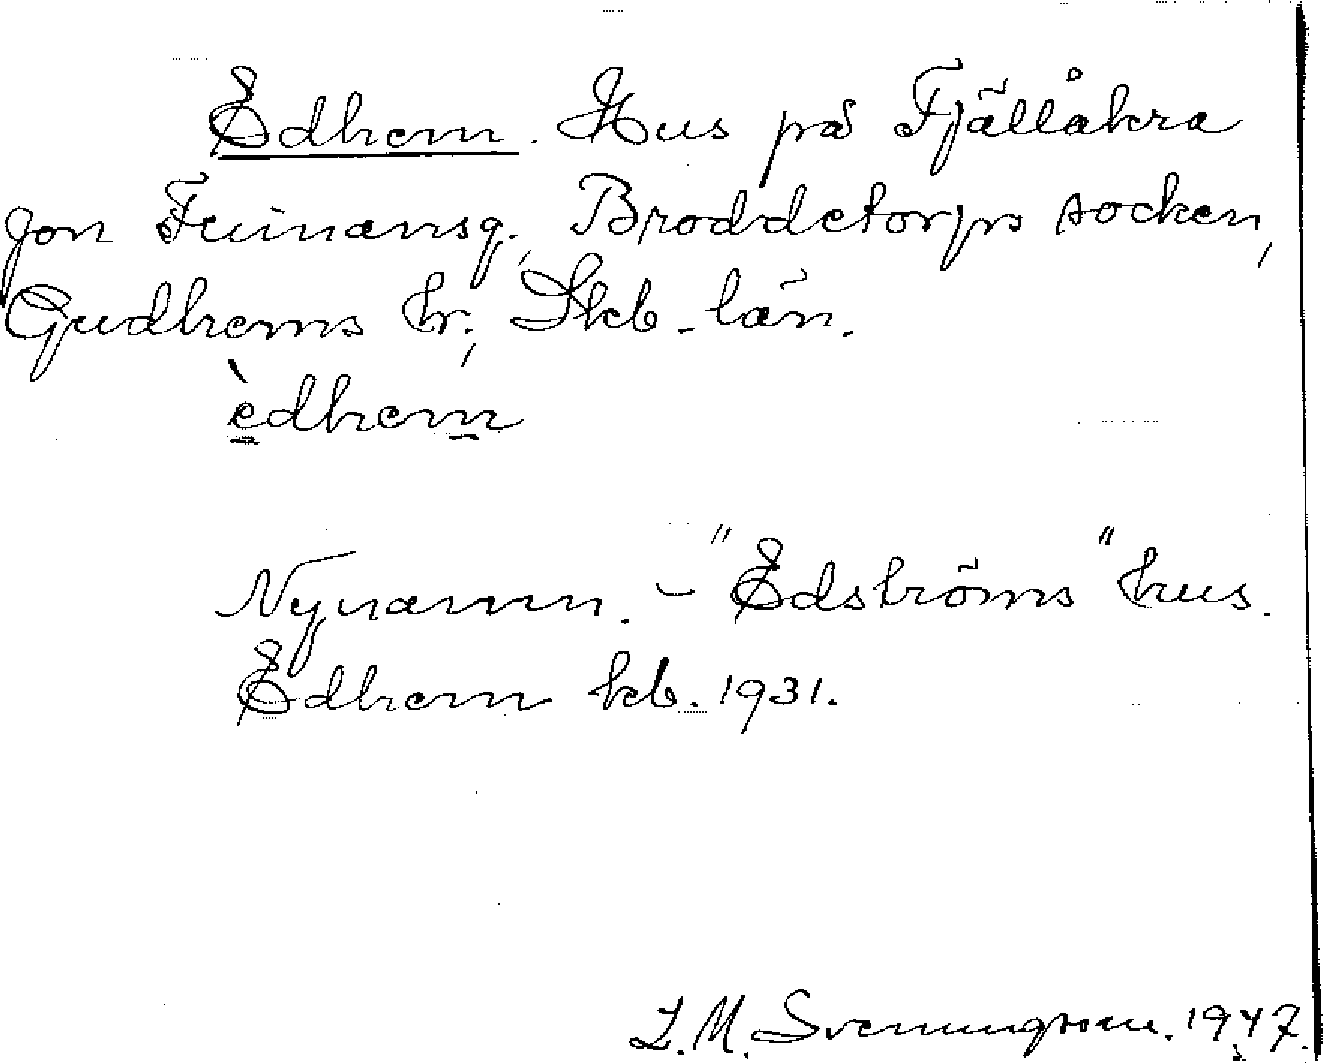 Edhem. Hus på Fjällåkra
Jon Tuinænsg., Broddetorps socken,
Gudhems hr., Skb-län.
èdhem
Nynamn. - "Edströms" hus.
Edhem kb. 1931.
L. M. Svenungsson. 1947.